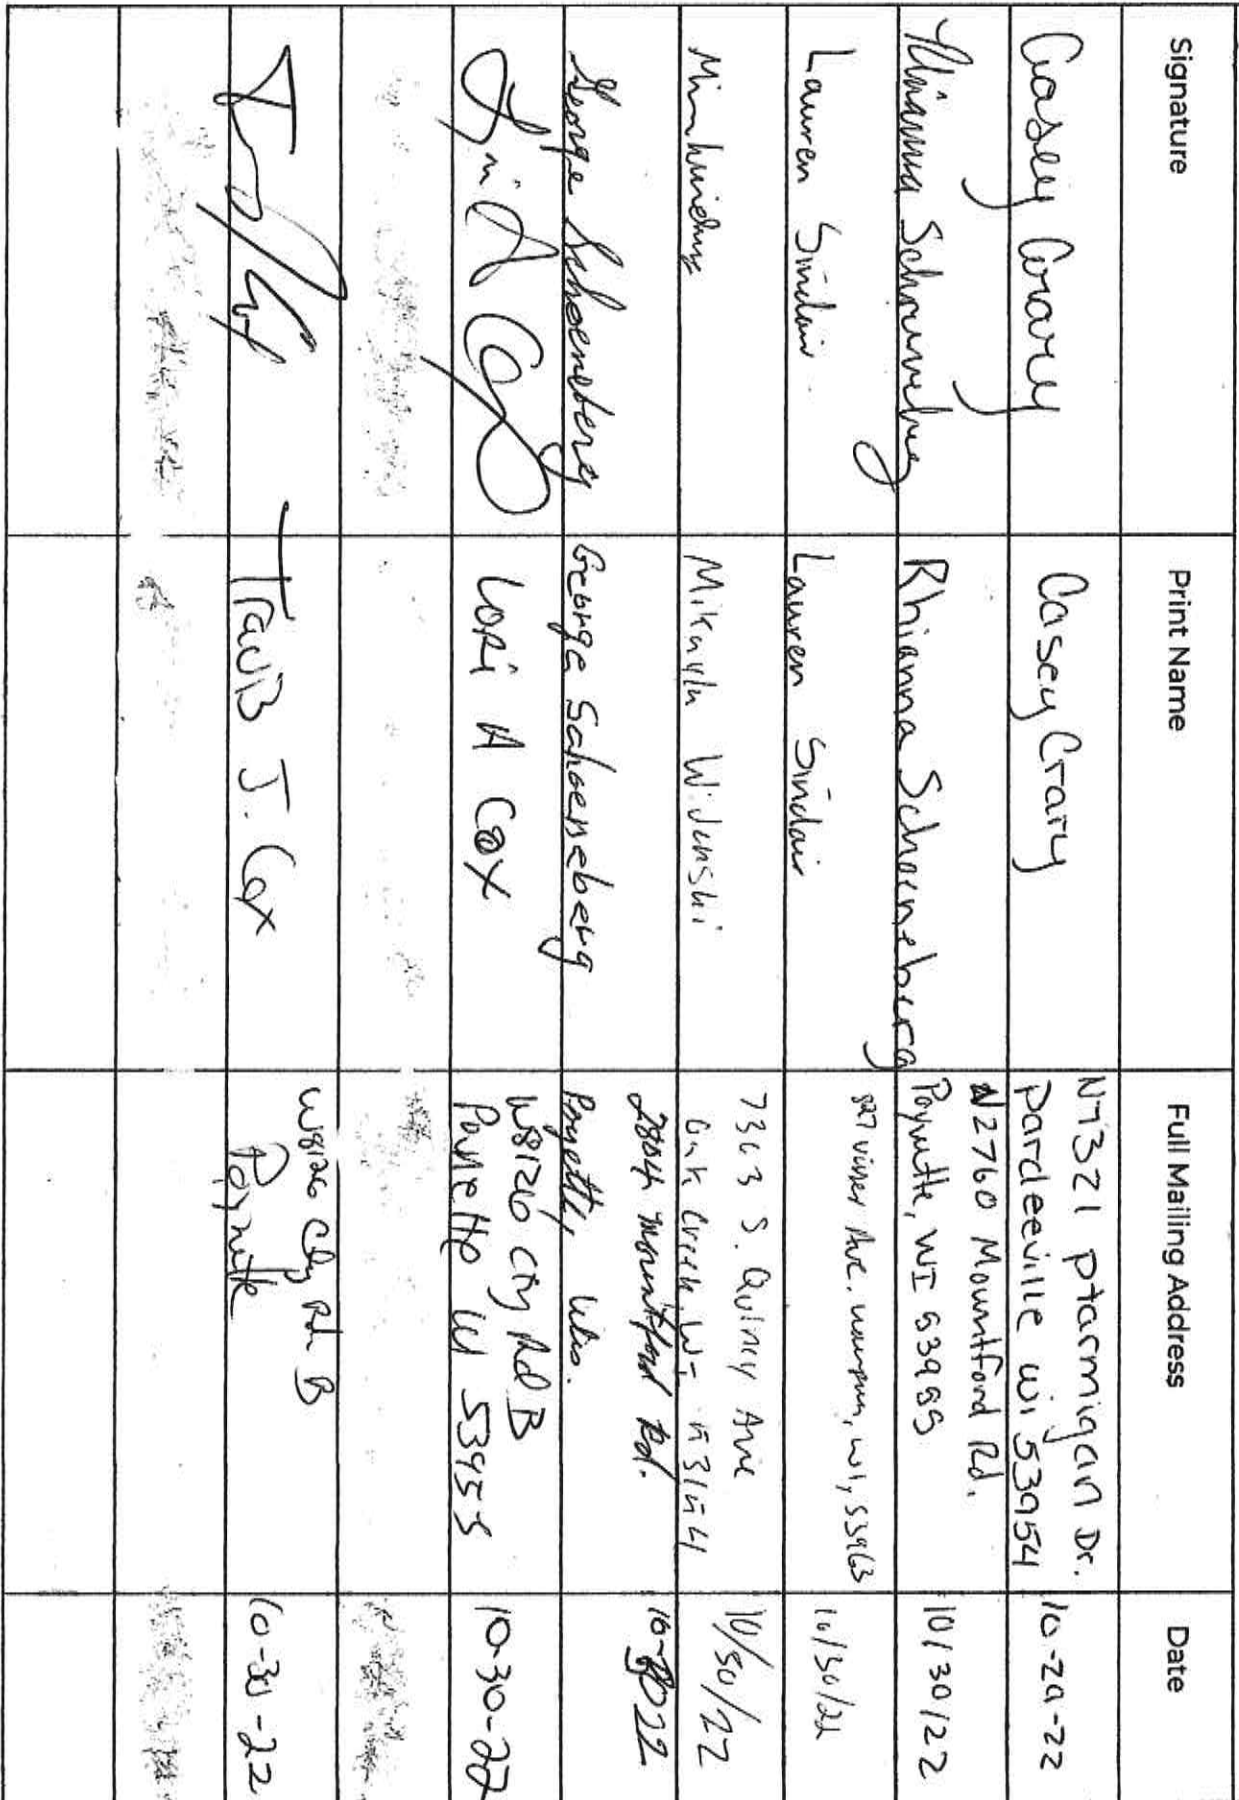 Signature Print Name Full Mailing Address Date
Casey Crary Casey Crary N7321 Ptarmigan Dr.
Pardeeville Wi 53954 10-29-22
Rhianna Schoeneberg Rhianna Schoeneberg N2760 Mountford Rd.
Poynette, WI 53955 10/30/22
Lauren Sinclair Lauren Sinclair Ave. WI, 53963 10/30/22
Mikayla 7363 S. Quincy Ave
Oak Creek, WI 53154 10/30/22
George Schoeneberg George Schoeneberg Mountford Rd.
Poynette, Wis.
Lori A Cox Lori A Cox W8126 Cty Rd B
Poynette WI 53955 10-30-22
Travis J. Cox W8126 Cty Rd B
Poynette 10-30-22